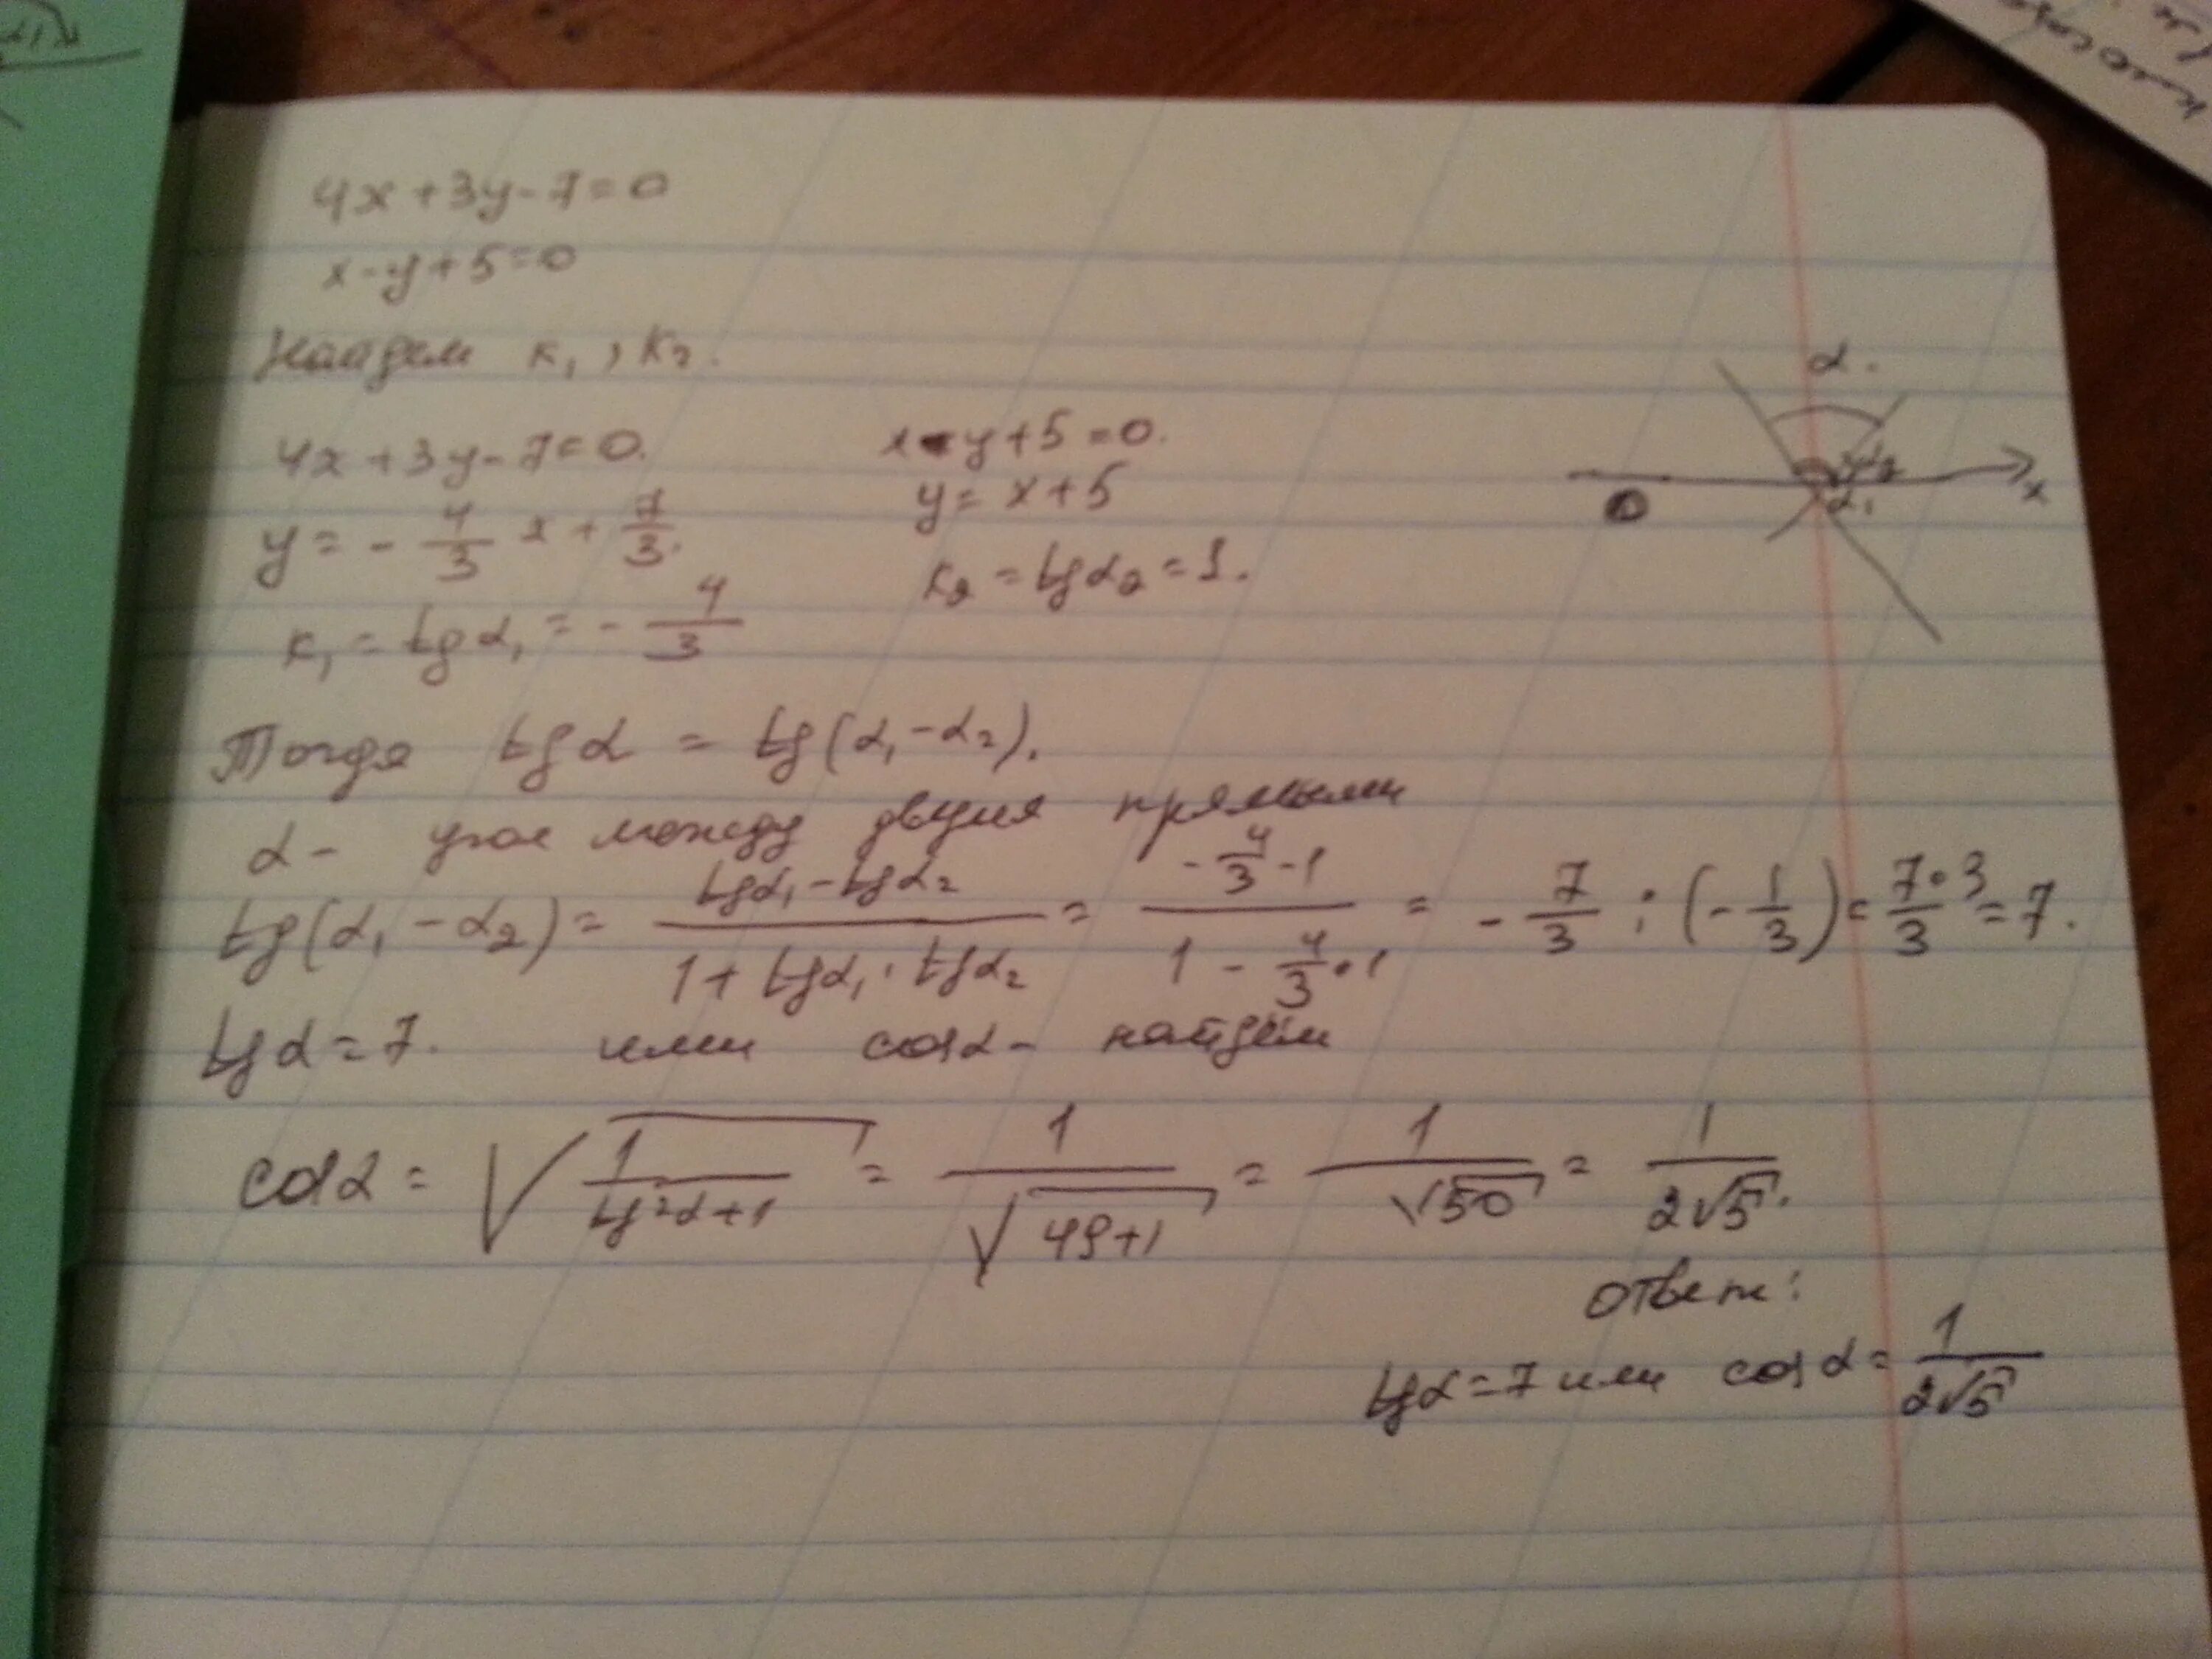 4x+3y-7=0
x-y+5=0
Найдем к₁, к₂.
4x+3y-7=0.
x-y+5=0.
y = -4/3 x + 7/3.
y = x+5
к₁ = tgα₁ = -4/3
к₂ = tgα₂ = 1.
α.
α₂
α₁
x
Тогда tgα = tg(α₁-α₂).
α - угол между двумя прямыми
tg(α₁-α₂) = (tgα₁-tgα₂)/(1+tgα₁·tgα₂) = (-4/3-1)/(1-4/3·1) = -7/3 : (-1/3) = 7·3/3 = 7.
tgα=7. или cosα- найдём
cosα = √(1/(tg²α+1)) = 1/√(49+1) = 1/√50 = 1/2√5.
ответ:
tgα=7 или cosα = 1/2√5